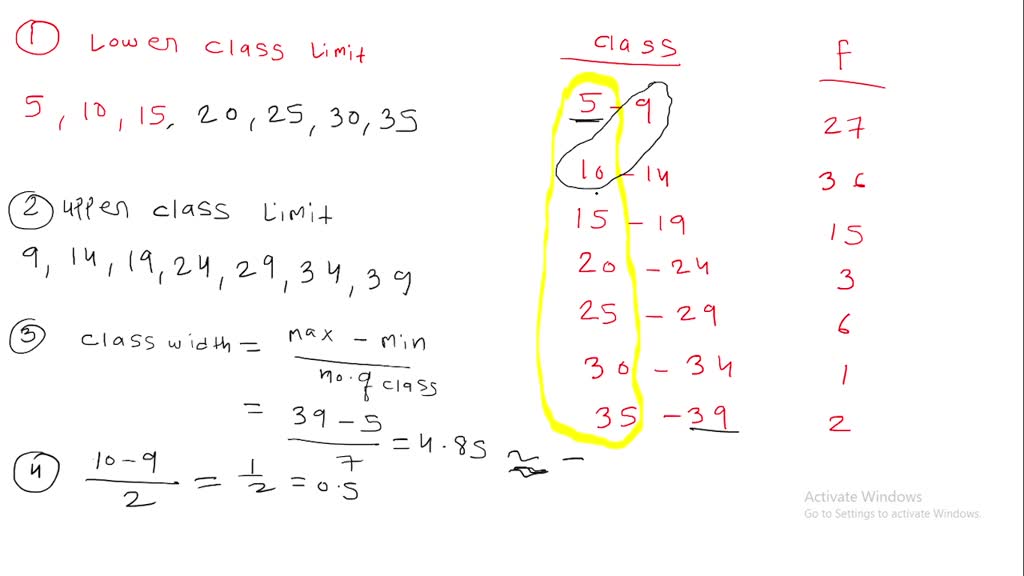 1 Lower class Limit
5, 10, 15, 20, 25, 30, 35
2 upper class Limit
9, 14, 19, 24, 29, 34, 39
3 class width = max - min / no. of class
= 39 - 5 / 7 = 4.85 ≈ -
4 10 - 9 / 2 = 1/2 = 0.5
class f
5 - 9 27
10 - 14 36
15 - 19 15
20 - 24 3
25 - 29 6
30 - 34 1
35 - 39 2
Activate Windows
Go to Settings to activate Windows.